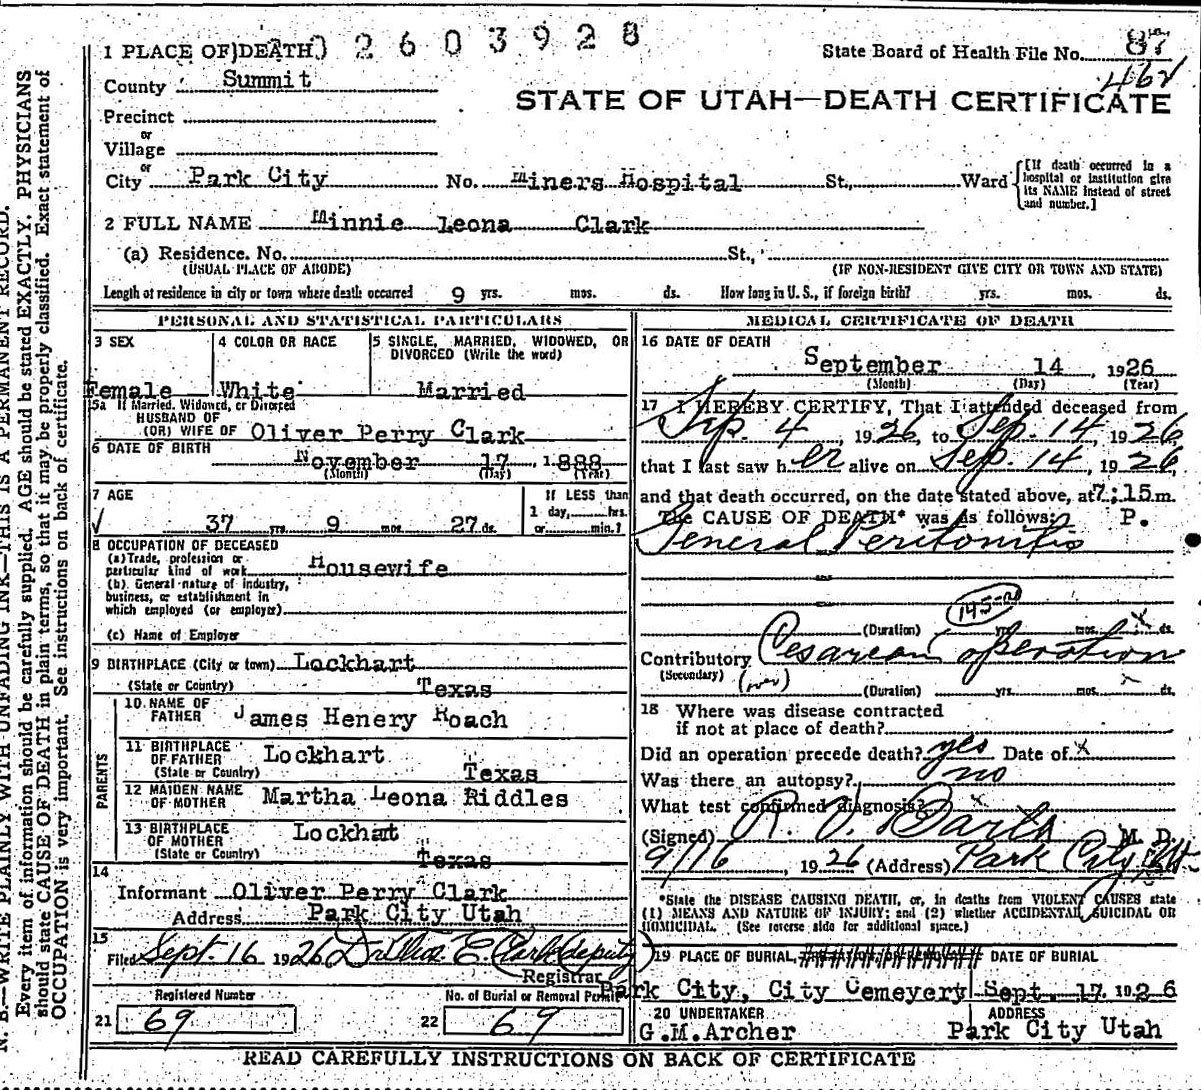 2603928
1 PLACE OF DEATH
State Board of Health File No. 87
462
County Summit
STATE OF UTAH—DEATH CERTIFICATE
Precinct
or
Village
or
City Park City No. Miners Hospital St., Ward
[If death occurred in a hospital or institution give its NAME instead of street and number.]
2 FULL NAME Minnie Leona Clark
(a) Residence. No. St.,
(USUAL PLACE OF ABODE) (IF NON-RESIDENT GIVE CITY OR TOWN AND STATE)
Length of residence in city or town where death occurred 9 yrs. mos. ds. How long in U. S., if foreign birth? yrs. mos. ds.
PERSONAL AND STATISTICAL PARTICULARS
3 SEX
Female
4 COLOR OR RACE
White
5 SINGLE, MARRIED, WIDOWED, OR DIVORCED (Write the word)
Married
5a If Married, Widowed, or Divorced
HUSBAND OF
(OR) WIFE OF Oliver Perry Clark
6 DATE OF BIRTH November 17, 1888
(Month) (Day) (Year)
7 AGE
37 yrs. 9 mos. 27 ds.
If LESS than
1 day, hrs.
or min.?
8 OCCUPATION OF DECEASED
(a) Trade, profession or
particular kind of work Housewife
(b) General nature of industry,
business, or establishment in
which employed (or employer)
(c) Name of Employer
9 BIRTHPLACE (City or town) Lockhart
(State or Country) Texas
PARENTS
10 NAME OF
FATHER James Henery Roach
11 BIRTHPLACE
OF FATHER Lockhart
(State or Country) Texas
12 MAIDEN NAME
OF MOTHER Martha Leona Riddles
13 BIRTHPLACE
OF MOTHER Lockhat
(State or Country) Texas
14
Informant Oliver Perry Clark
Address Park City Utah
15
Filed Sept. 16 1926 E. Clark (deputy)
Registrar
Registered Number
21 69
No. of Burial or Removal Permit
22 69
MEDICAL CERTIFICATE OF DEATH
16 DATE OF DEATH
September 14, 1926
(Month) (Day) (Year)
17 I HEREBY CERTIFY, That I attended deceased from
Sep. 4, 1926, to Sep. 14, 1926
that I last saw her alive on Sep. 14, 1926,
and that death occurred, on the date stated above, at 7:15 m.
The CAUSE OF DEATH* was as follows: P.
General Peritonitis
145-a
(Duration) yrs. mos. x ds.
Contributory Cesarean operation
(Secondary) (over) (Duration) yrs. mos. x ds.
18 Where was disease contracted
if not at place of death?
Did an operation precede death? yes Date of x
Was there an autopsy? no
What test confirmed diagnosis? x
(Signed) R. V. M. D.
9/16 1926 (Address) Park City, Ut
*State the DISEASE CAUSING DEATH, or, in deaths from VIOLENT CAUSES state
(1) MEANS AND NATURE OF INJURY; and (2) whether ACCIDENTAL, SUICIDAL OR
HOMICIDAL. (See reverse side for additional space.)
19 PLACE OF BURIAL, DATE OF BURIAL
Park City, City Cemeyery Sept. 17. 1926
20 UNDERTAKER ADDRESS
G.M.Archer Park City Utah
READ CAREFULLY INSTRUCTIONS ON BACK OF CERTIFICATE
N. B.—WRITE PLAINLY WITH UNFADING INK—THIS IS A PERMANENT RECORD.
Every item of information should be carefully supplied. AGE should be stated EXACTLY. PHYSICIANS
should state CAUSE OF DEATH in plain terms, so that it may be properly classified. Exact statement of
OCCUPATION is very important. See instructions on back of certificate.